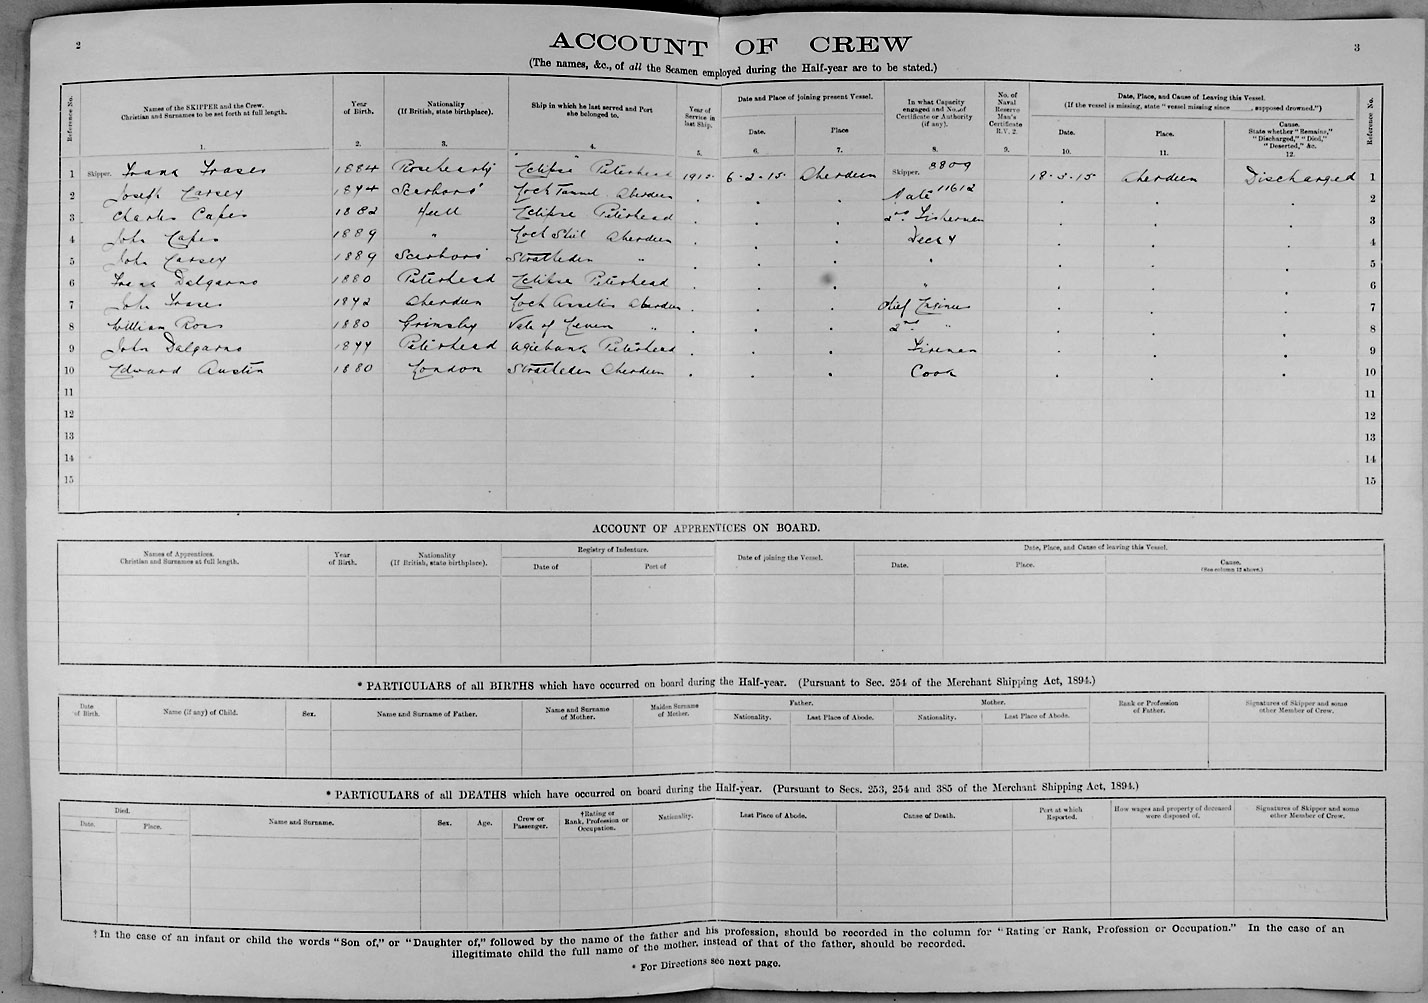 2
3
ACCOUNT OF CREW
(The names, &c., of all the Seamen employed during the Half-year are to be stated.)
Reference No.
Names of the SKIPPER and the Crew. Christian and Surnames to be set forth at full length.
1.
Year of Birth.
2.
Nationality (If British, state birthplace).
3.
Ship in which he last served and Port she belonged to.
4.
Year of Service in last Ship.
5.
Date and Place of joining present Vessel.
Date.
6.
Place
7.
In what Capacity engaged and No. of Certificate or Authority (if any).
8.
No. of Naval Reserve Man's Certificate R.V. 2.
9.
Date, Place, and Cause of Leaving this Vessel.
(If the vessel is missing, state "vessel missing since ____, supposed drowned.")
Date.
10.
Place.
11.
Cause. State whether "Remains," "Discharged," "Died," "Deserted," &c.
12.
Reference No.
1 Skipper. Frank Fraser 1884 Rosehearty "Eclipse" Peterhead 6-2-15 Aberdeen Skipper. 8809 Aberdeen Discharged 1
2 Joseph 1874 Scarboro' Loch Tummel Aberdeen . . . Mate 11612 . . . 2
3 Charles Capes 1882 Hull Eclipse Peterhead . . . 2nd Fisherman . . . 3
4 John Capes 1889 " Loch Shiel Aberdeen . . . Decky . . . 4
5 John 1889 Scarboro' Stratheden " . . . " . . . 5
6 Frank Dalgarno 1880 Peterhead Eclipse Peterhead . . . " . . . 6
7 John Fraser 1872 Aberdeen Loch Aberdeen . . . Chief Engineer . . . 7
8 William Ross 1880 Grimsby Vale of Leven " . . . 2nd " . . . 8
9 John Dalgarno 1877 Peterhead Peterhead . . . Fireman . . . 9
10 Edward Austin 1880 London Stratheden Aberdeen . . . Cook . . . 10
11 11
12 12
13 13
14 14
15 15
ACCOUNT OF APPRENTICES ON BOARD.
Names of Apprentices. Christian and Surnames at full length.
Year of Birth.
Nationality (If British, state birthplace).
Registry of Indenture.
Date of
Port of
Date of joining the Vessel.
Date, Place, and Cause of leaving this Vessel.
Date.
Place.
Cause. (See column 12 above.)
* PARTICULARS of all BIRTHS which have occurred on board during the Half-year. (Pursuant to Sec. 254 of the Merchant Shipping Act, 1894.)
Date of Birth.
Name (if any) of Child.
Sex.
Name and Surname of Father.
Name and Surname of Mother.
Maiden Surname of Mother.
Father.
Nationality.
Last Place of Abode.
Mother.
Nationality.
Last Place of Abode.
Rank or Profession of Father.
Signatures of Skipper and some other Member of Crew.
* PARTICULARS of all DEATHS which have occurred on board during the Half-year. (Pursuant to Secs. 253, 254 and 385 of the Merchant Shipping Act, 1894.)
Died.
Date.
Place.
Name and Surname.
Sex.
Age.
Crew or Passenger.
†Rating or Rank, Profession or Occupation.
Nationality.
Last Place of Abode.
Cause of Death.
Port at which Reported.
How wages and property of deceased were disposed of.
Signatures of Skipper and some other Member of Crew.
†In the case of an infant or child the words "Son of," or "Daughter of," followed by the name of the father and his profession, should be recorded in the column for "Rating or Rank, Profession or Occupation." In the case of an
illegitimate child the full name of the mother, instead of that of the father, should be recorded.
* For Directions see next page.